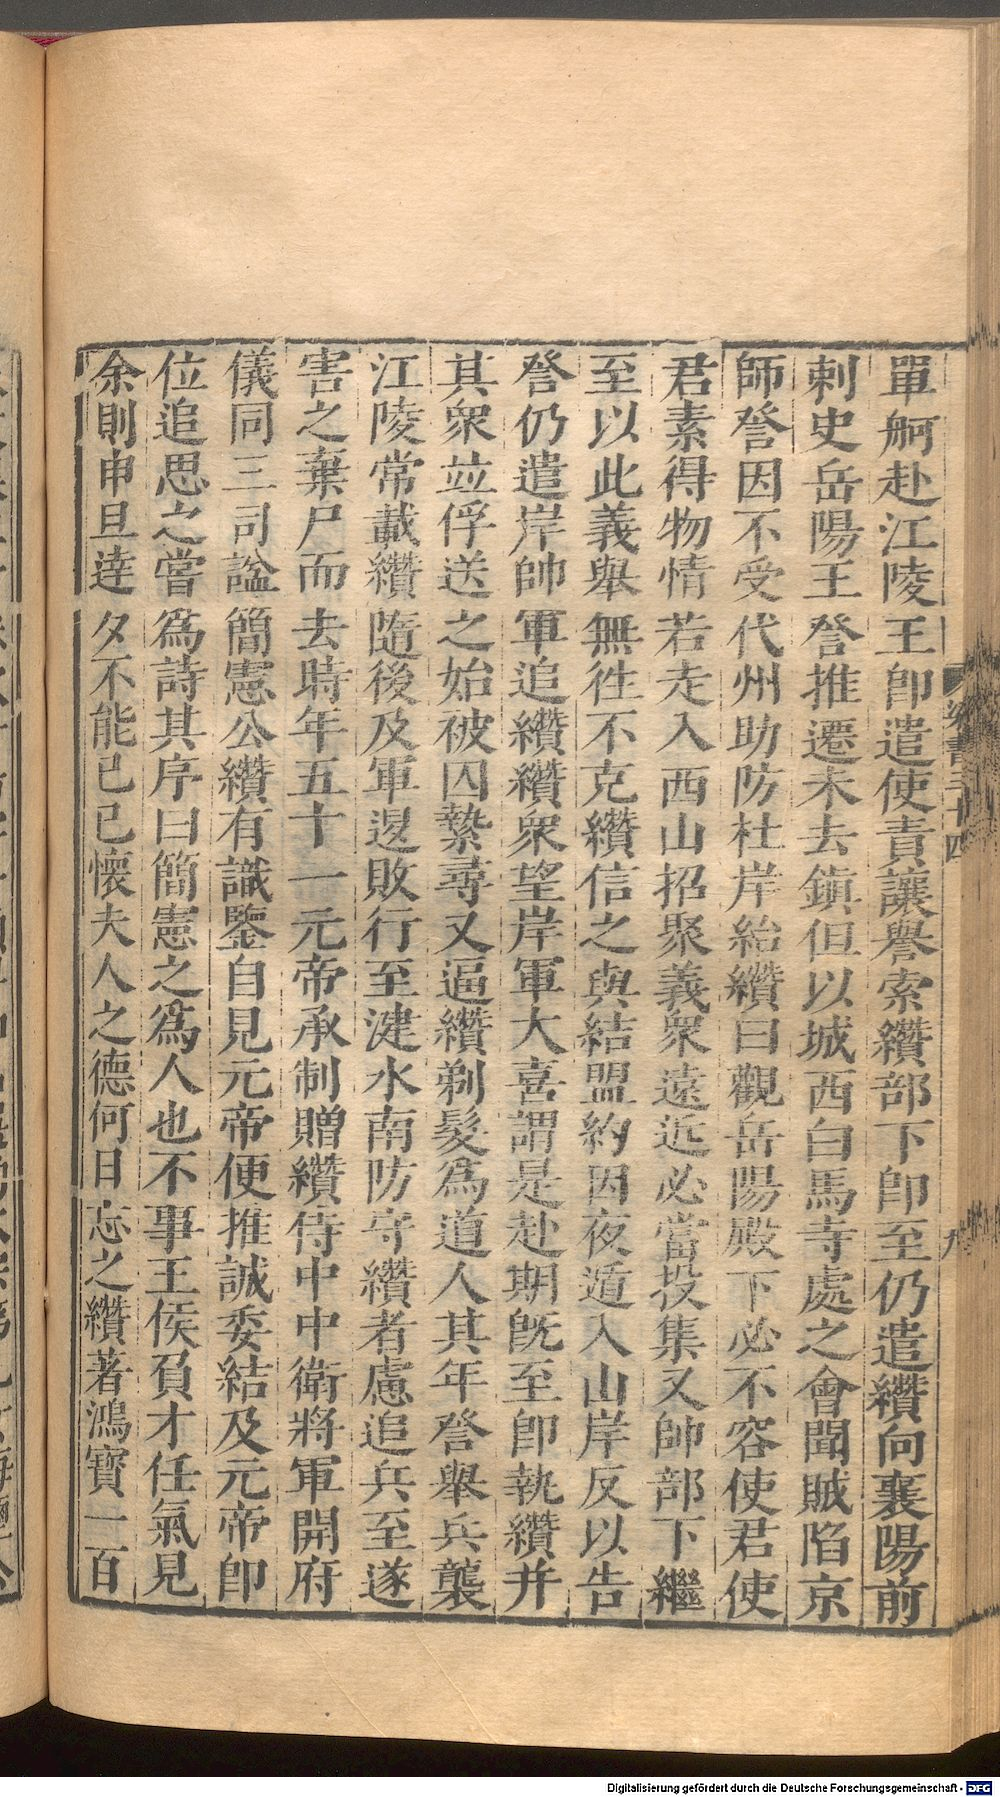 單舸赴江陵王卽遣使責讓譽索纘部下卽至仍遣纘向襄陽前
刺史岳陽王詧推遷未去鎮但以城西白馬寺處之會聞賊陷京
師詧因不受代州助防杜岸紿纘曰觀岳陽殿下必不容使君使
君素得物情若走入西山招聚義衆遠近必當投集又帥部下繼
至以此義舉無徃不克纘信之與結盟約因夜遁入山岸反以告
詧仍遣岸帥軍追纘纘衆望岸軍大喜謂是赴期旣至卽執纘并
其衆竝俘送之始被囚縶尋又逼纘剃髮爲道人其年詧舉兵襲
江陵常載纘隨後及軍退敗行至湕水南防守纘者慮追兵至遂
害之棄尸而去時年五十一元帝承制贈纘侍中中衛將軍開府
儀同三司諡簡憲公纘有識鑒自見元帝便推誠委結及元帝卽
位追思之嘗爲詩其序曰簡憲之爲人也不事王侯負才任氣見
余則申旦達夕不能已已懷夫人之德何日忘之纘著鴻寶一百
梁書三十四
九
Digitalisierung gefördert durch die Deutsche Forschungsgemeinschaft - DFG